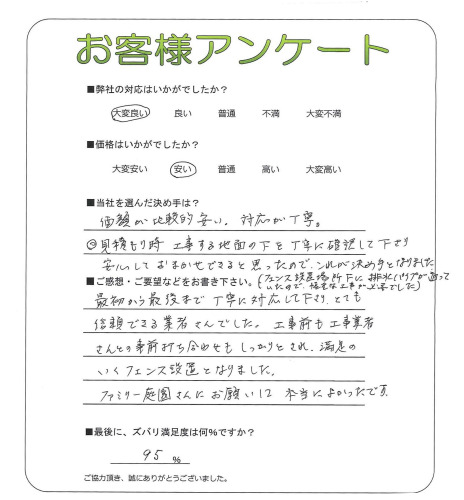 お客様アンケート
■弊社の対応はいかがでしたか？
大変良い 良い 普通 不満 大変不満
■価格はいかがでしたか？
大変安い 安い 普通 高い 大変高い
■当社を選んだ決め手は？
価額が比較的安い、対応が丁寧。
◎見積もり時 工事する地面の下を丁寧に確認して下さり
安心しておまかせできると思ったので、これが決め手となりました
■ご感想・ご要望などをお書き下さい。
(フェンス設置場所下に排水パイプが通って
いたので、工事が必要でした)
最初から最後まで丁寧に対応して下さり、とても
信頼できる業者さんでした。工事前も工事業者
さんとの事前打ち合わせもしっかりとされ、満足の
いくフェンス設置となりました。
ファミリー庭園さんにお願いして本当によかったです
■最後に、ズバリ満足度は何%ですか？
95 %
ご協力頂き、誠にありがとうございました。